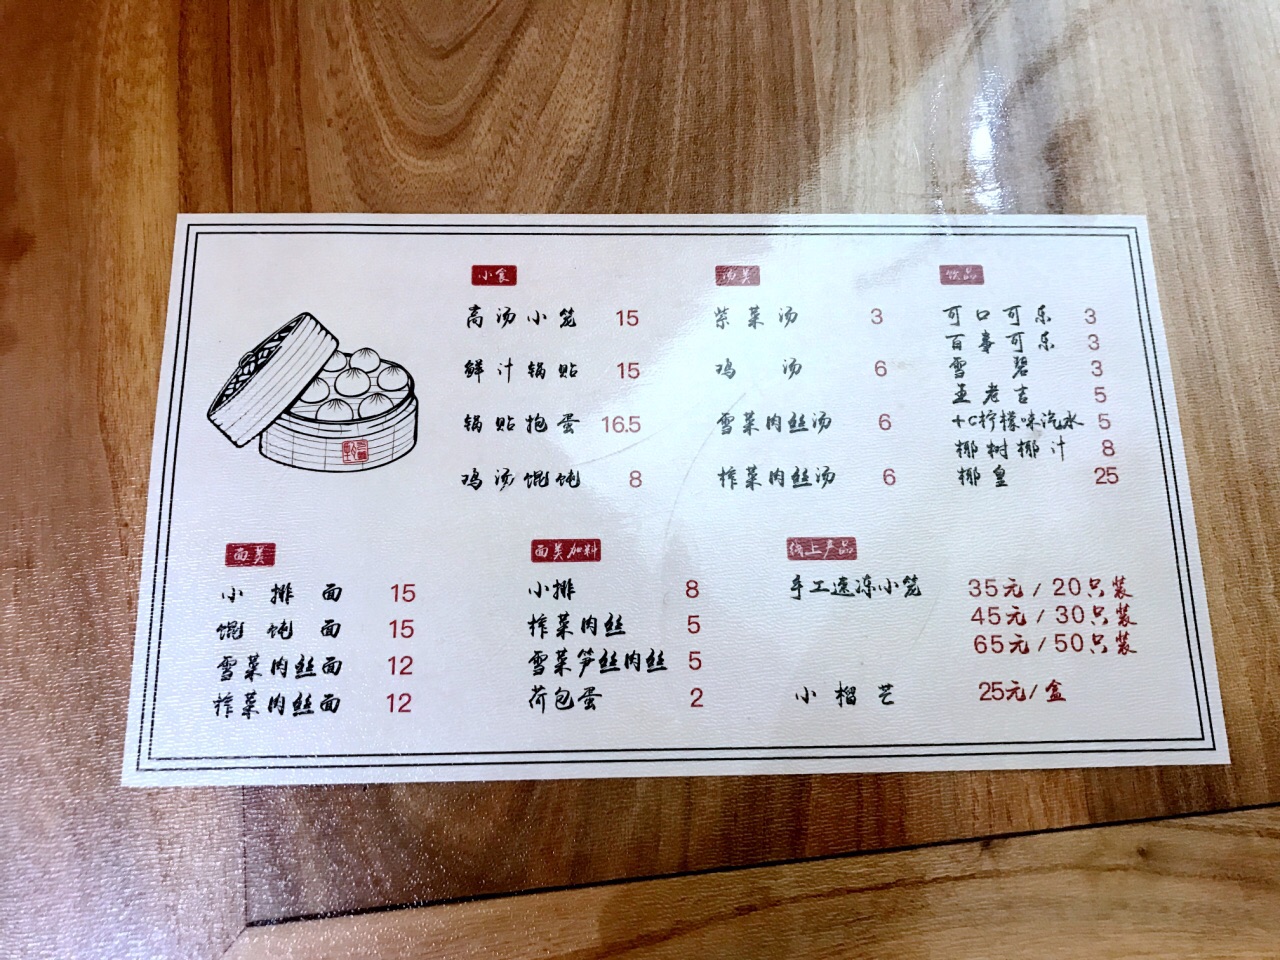 小食
高汤小笼 15
鲜汁锅贴 15
锅贴抱蛋 16.5
鸡汤馄饨 8
汤类
紫菜汤 3
鸡汤 6
雪菜肉丝汤 6
榨菜肉丝汤 6
饮品
可口可乐 3
百事可乐 3
雪碧 3
王老吉 5
+C柠檬味汽水 5
椰树椰汁 8
椰皇 25
面类
小排面 15
馄饨面 15
雪菜肉丝面 12
榨菜肉丝面 12
面类加料
小排 8
榨菜肉丝 5
雪菜笋丝肉丝 5
荷包蛋 2
线上产品
手工速冻小笼 35元/20只装
45元/30只装
65元/50只装
小榴芒 25元/盒